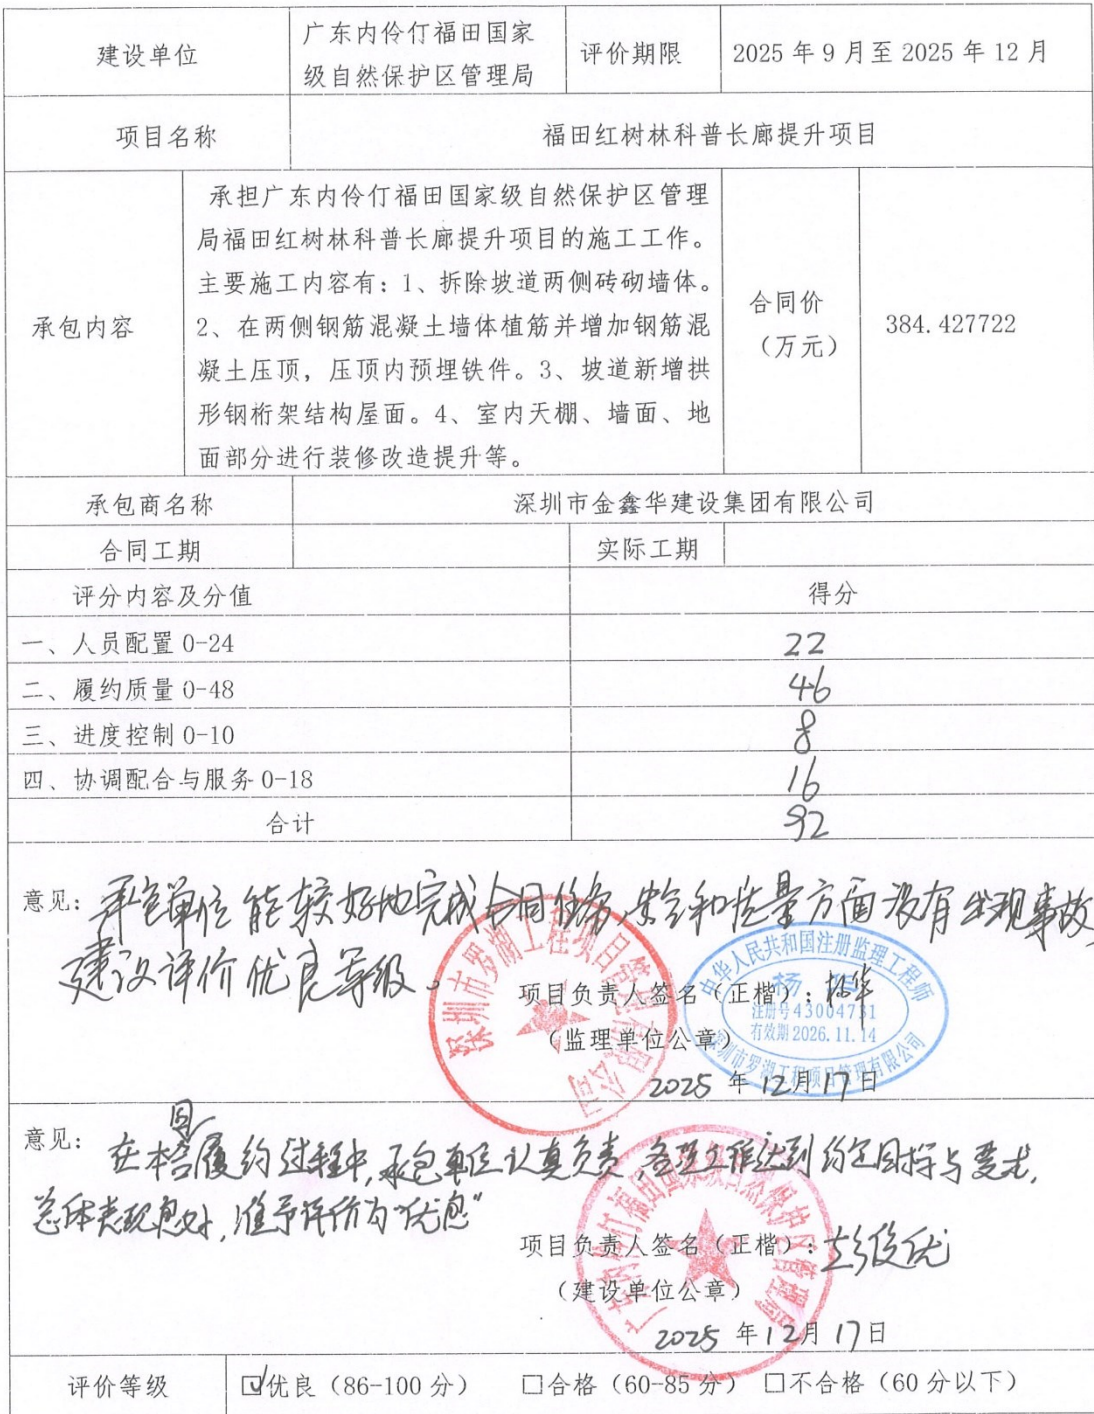 建设单位
广东内伶仃福田国家
级自然保护区管理局
评价期限
2025年9月至2025年12月
项目名称
福田红树林科普长廊提升项目
承包内容
承担广东内伶仃福田国家级自然保护区管理
局福田红树林科普长廊提升项目的施工工作。
主要施工内容有：1、拆除坡道两侧砖砌墙体。
2、在两侧钢筋混凝土墙体植筋并增加钢筋混
凝土压顶，压顶内预埋铁件。3、坡道新增拱
形钢桁架结构屋面。4、室内天棚、墙面、地
面部分进行装修改造提升等。
合同价
（万元）
384.427722
承包商名称
深圳市金鑫华建设集团有限公司
合同工期
实际工期
评分内容及分值
得分
一、人员配置 0-24
22
二、履约质量 0-48
46
三、进度控制 0-10
8
四、协调配合与服务 0-18
16
合计
92
意见：承包单位能较好地完成合同任务，安全和质量方面没有出现事故，
建议评价优良等级。
深圳市罗湖工程项目管理有限公司
中华人民共和国注册监理工程师
杨
注册号43004731
有效期2026.11.14
深圳市罗湖工程项目管理有限公司
项目负责人签名（正楷）：杨华
（监理单位公章）
2025 年 12月 17日
意见：在本合同履约过程中，承包单位认真负责，各项工作达到约定目标与要求，
总体表现良好，准予评价为“优良”
广东内伶仃福田国家级自然保护区管理局
项目负责人签名（正楷）：彭俊优
（建设单位公章）
2025 年 12月 17日
评价等级
☑优良（86-100分） □合格（60-85分） □不合格（60分以下）